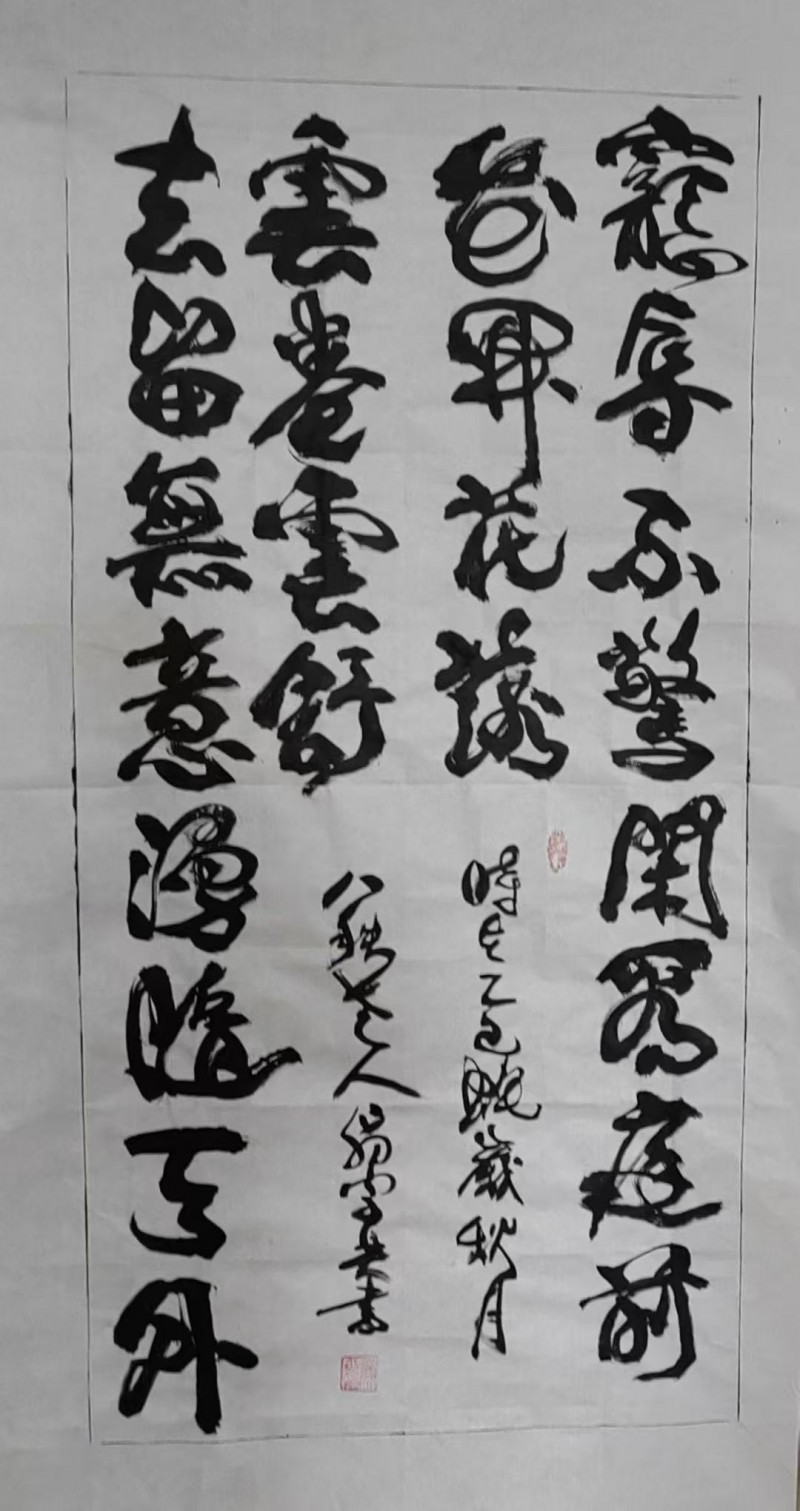 寵辱不驚閑看庭前
花開花落
時在乙巳蛇歲秋月
去留無意漫隨天外
雲卷雲舒
八秩老人書